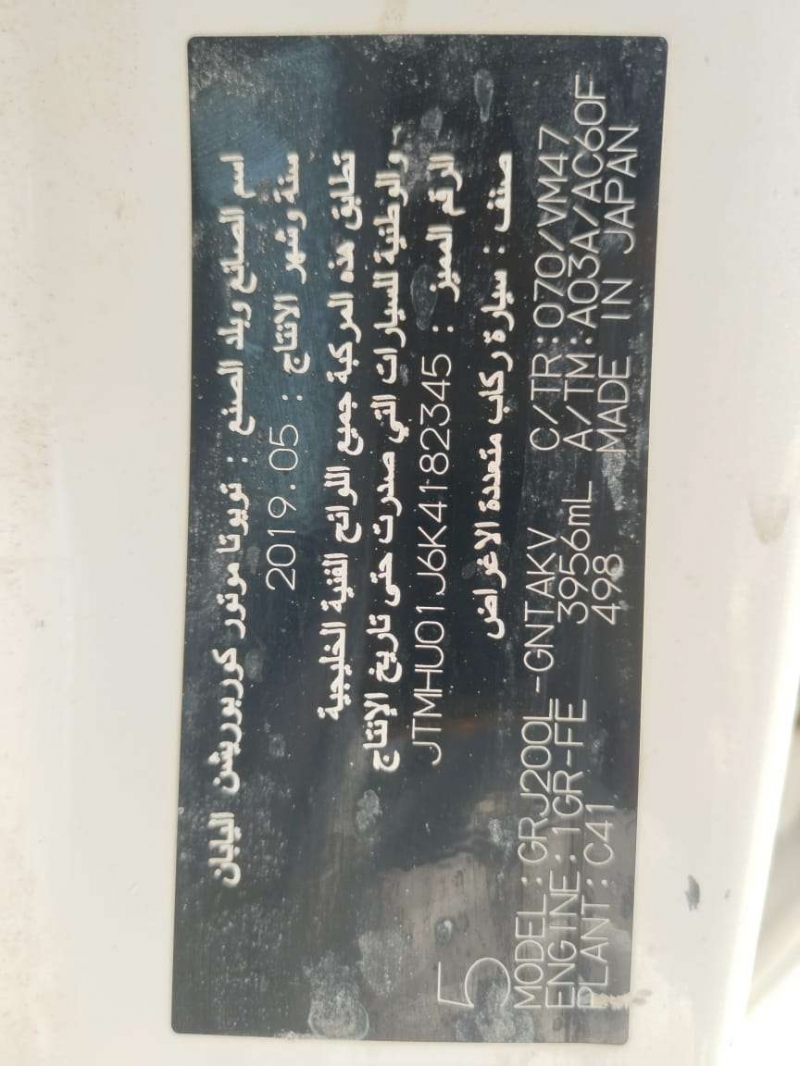 اسم الصانع وبلد الصنع : تويوتا موتور كوربوريشن اليابان
سنة وشهر الانتاج : 2019.05
تطابق هذه المركبة جميع اللوائح الفنية الخليجية
والوطنية للسيارات التي صدرت حتى تاريخ الإنتاج
الرقم المميز : JTMHU01J6K4182345
صنف : سيارة ركاب متعددة الاغراض
5
MODEL:GRJ200L-GNTAKV C/TR:070/VM47
ENGINE:1GR-FE 3956mL A/TM:A03A/AC60F
PLANT:C41 498 MADE IN JAPAN